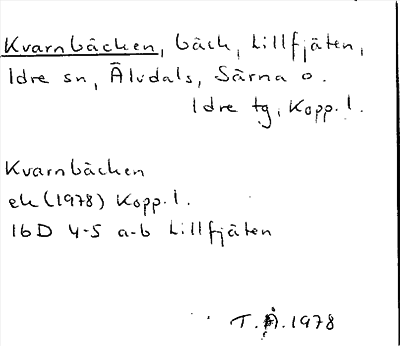 Kvarnbäcken, bäck, Lillfjäten,
Idre sn, Älvdals, Särna o.
Idre tg, Kopp. l.
Kvarnbäcken
ek (1978) Kopp. l.
16D 4-5 a-b Lillfjäten
T.Å. 1978